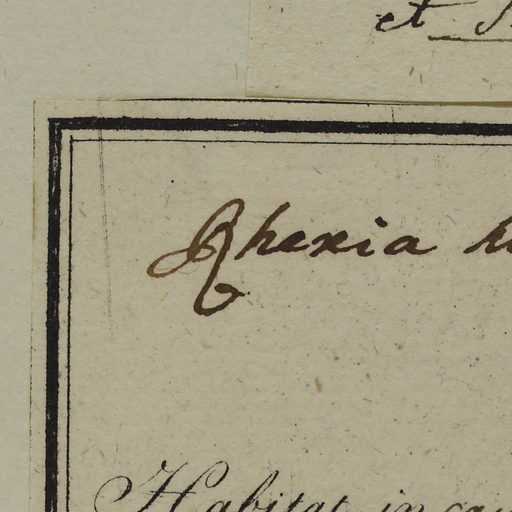 et
Rhexia
Habitat in